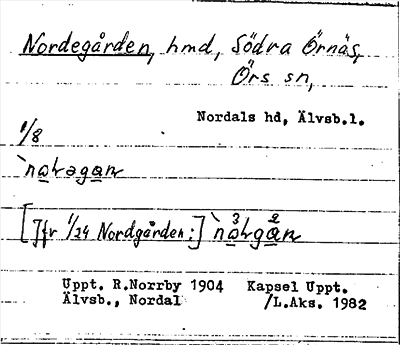 Nordegården, hmd, Södra Örnäs,
Örs sn,
Nordals hd, Älvsb.l.
1/8
`na̲ɫəga̲n
[Jfr 1/24 Nordgården:] `na̲ɫga̲n
Uppt. R.Norrby 1904 Kapsel Uppt.
Älvsb., Nordal /L.Aks. 1982